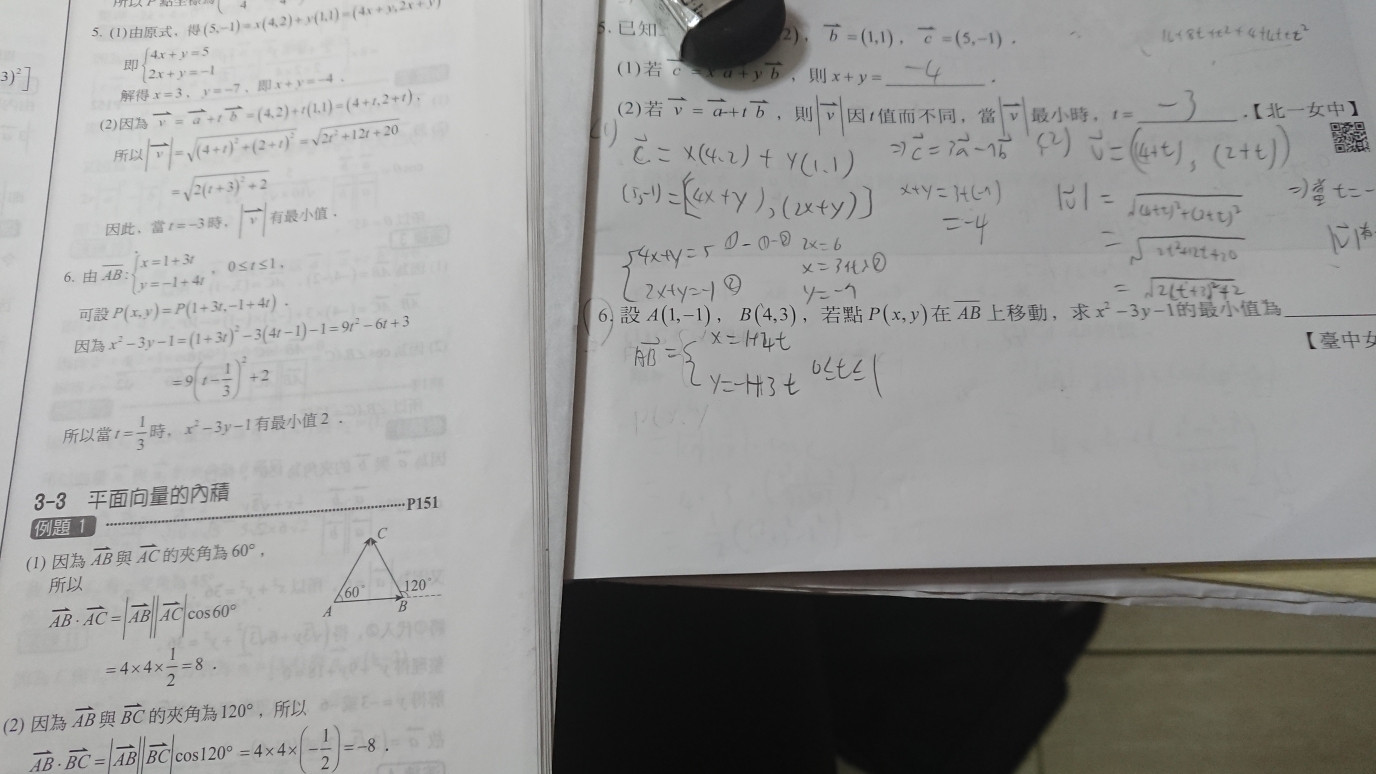 5. (1)由原式，得(5,−1)=x(4,2)+y(1,1)=(4x+y,2x+y)
3)²]
即{4x+y=5
2x+y=−1
解得x=3，y=−7，即x+y=−4．
(2)因為 v⃗=a⃗+t b⃗=(4,2)+t(1,1)=(4+t,2+t)．
所以|v⃗|=√((4+t)²+(2+t)²)=√(2t²+12t+20)
=√(2(t+3)²+2)
因此，當t=−3時，|v⃗|有最小值．
6. 由AB:{x=1+3t
y=−1+4t，0≤t≤1，
可設P(x,y)=P(1+3t,−1+4t)．
因為x²−3y−1=(1+3t)²−3(4t−1)−1=9t²−6t+3
=9(t−1/3)²+2
所以當t=1/3時，x²−3y−1有最小值2．
3-3 平面向量的內積
例題 1 P151
(1) 因為AB⃗與AC⃗的夾角為60°，
所以
AB⃗·AC⃗=|AB⃗||AC⃗|cos60°
=4×4×1/2=8．
C
60°
120°
A
B
(2) 因為AB⃗與BC⃗的夾角為120°，所以
AB⃗·BC⃗=|AB⃗||BC⃗|cos120°=4×4×(−1/2)=−8．
5. 已知 2)，b⃗=(1,1)，c⃗=(5,−1)．
16+8t+t²+4+4t+t²
(1)若 c⃗=x a⃗+y b⃗，則x+y= −4．
(2)若 v⃗=a⃗+t b⃗，則|v⃗|因t值而不同，當|v⃗|最小時，t= −3．【北一女中】
(1) c⃗=x(4.2)+y(1.1) ⇒c⃗=3a⃗−7b⃗ (2) v⃗=(4+t),(2+t)
(5,-1)=[4x+y),(2x+y)] x+y=3+(-7) |v⃗|=√((4+t)²+(2+t)²) ⇒當t=-
=-4
{4x+y=5 ① ①-② 2x=6 =√(2t²+12t+20) |v⃗|有
x=3代入②
2x+y=-1 ② y=-7 =√(2(t+3)²+2)
6. 設A(1,−1)，B(4,3)，若點P(x,y)在AB上移動，求x²−3y−1的最小值為
【臺中女
AB={x=1+4t
y=-1+3t 0≤t≤1